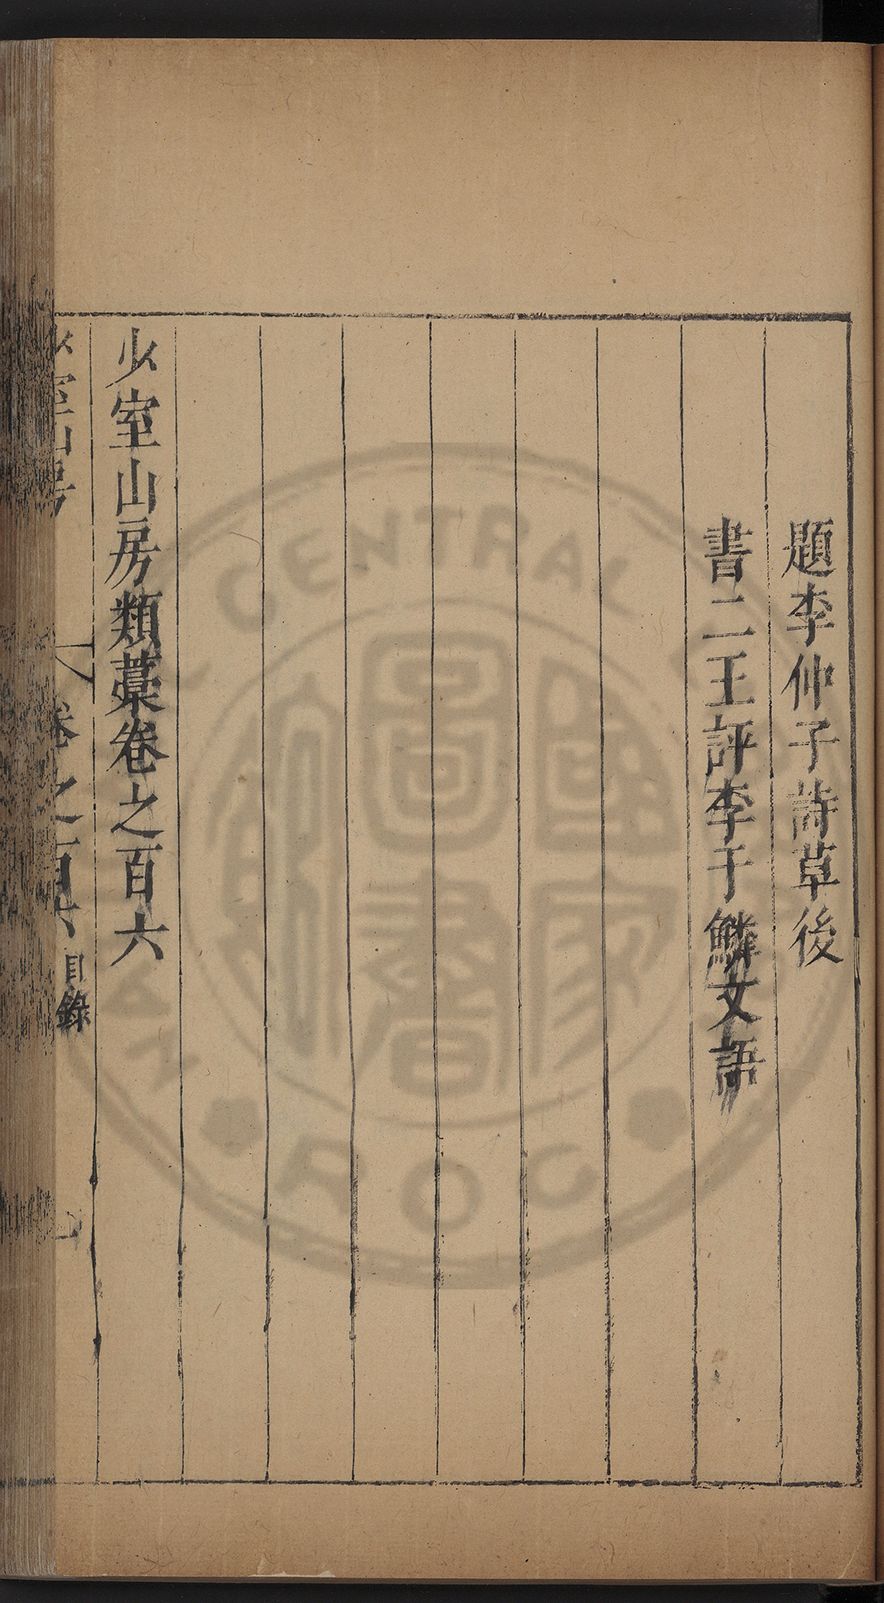 題李仲子詩草後
書二王評李于鱗文語
少室山房類藁卷之百六
少室山房
卷之百六
目錄